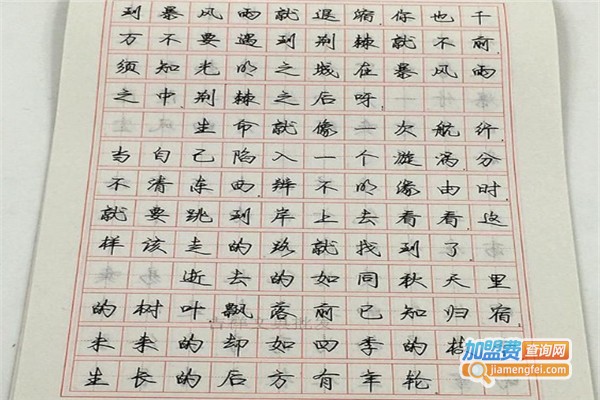 到暴风雨就退缩.你也千
万不要遇到荆棘就不前
须知光明之城在暴风雨
之中荆棘之后呀.
生命就像一次航行
当自己陷入一个漩涡分
不清东西.辨不明缘由时
就要跳到岸上去看看.这
样该走的路就找到了.
逝去的如同秋天里
的树叶飘落前已知归宿.
未来的却如四季的
生长的后方有年轮
加盟费查询网
jiamengfei.com